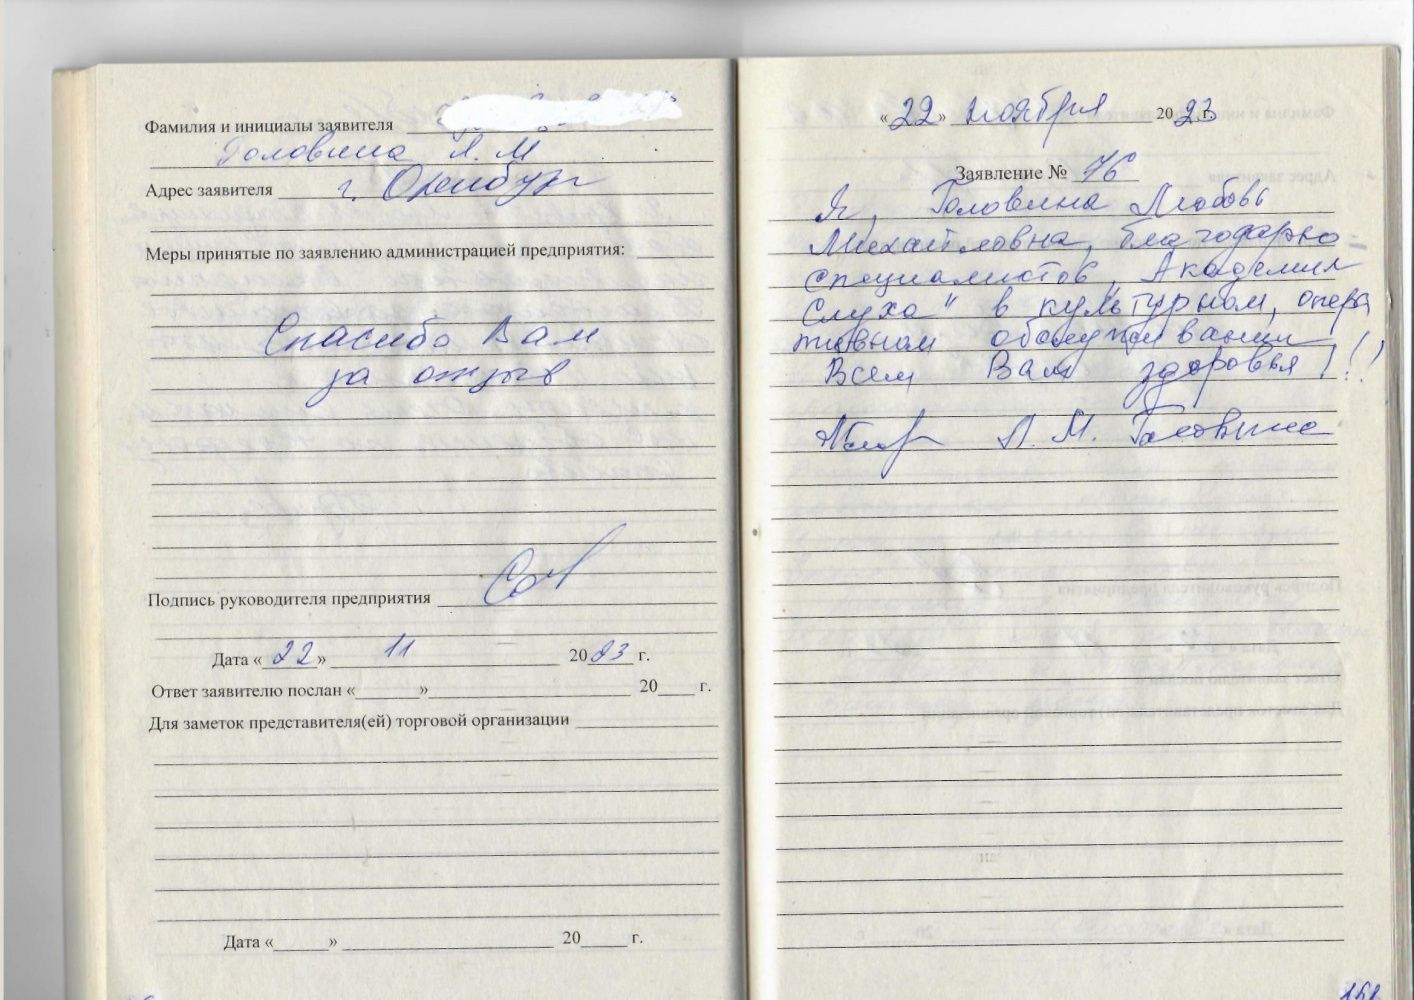 Фамилия и инициалы заявителя
Головина Л. М
Адрес заявителя г. Оренбург
Меры принятые по заявлению администрацией предприятия:
Спасибо Вам
за отзыв
Подпись руководителя предприятия
Дата «22» 11 2023 г.
Ответ заявителю послан «______» 20____ г.
Для заметок представителя(ей) торговой организации
Дата «______» 20_____ г.
«22» ноября 2023 г.
Заявление № 76
Я, Головина Любовь
Михайловна, благодарю
специалистов "Академия
Слуха" в культурном, опера
тивном обслуживании
Всем Вам здоровья!!!
Л. М. Головина